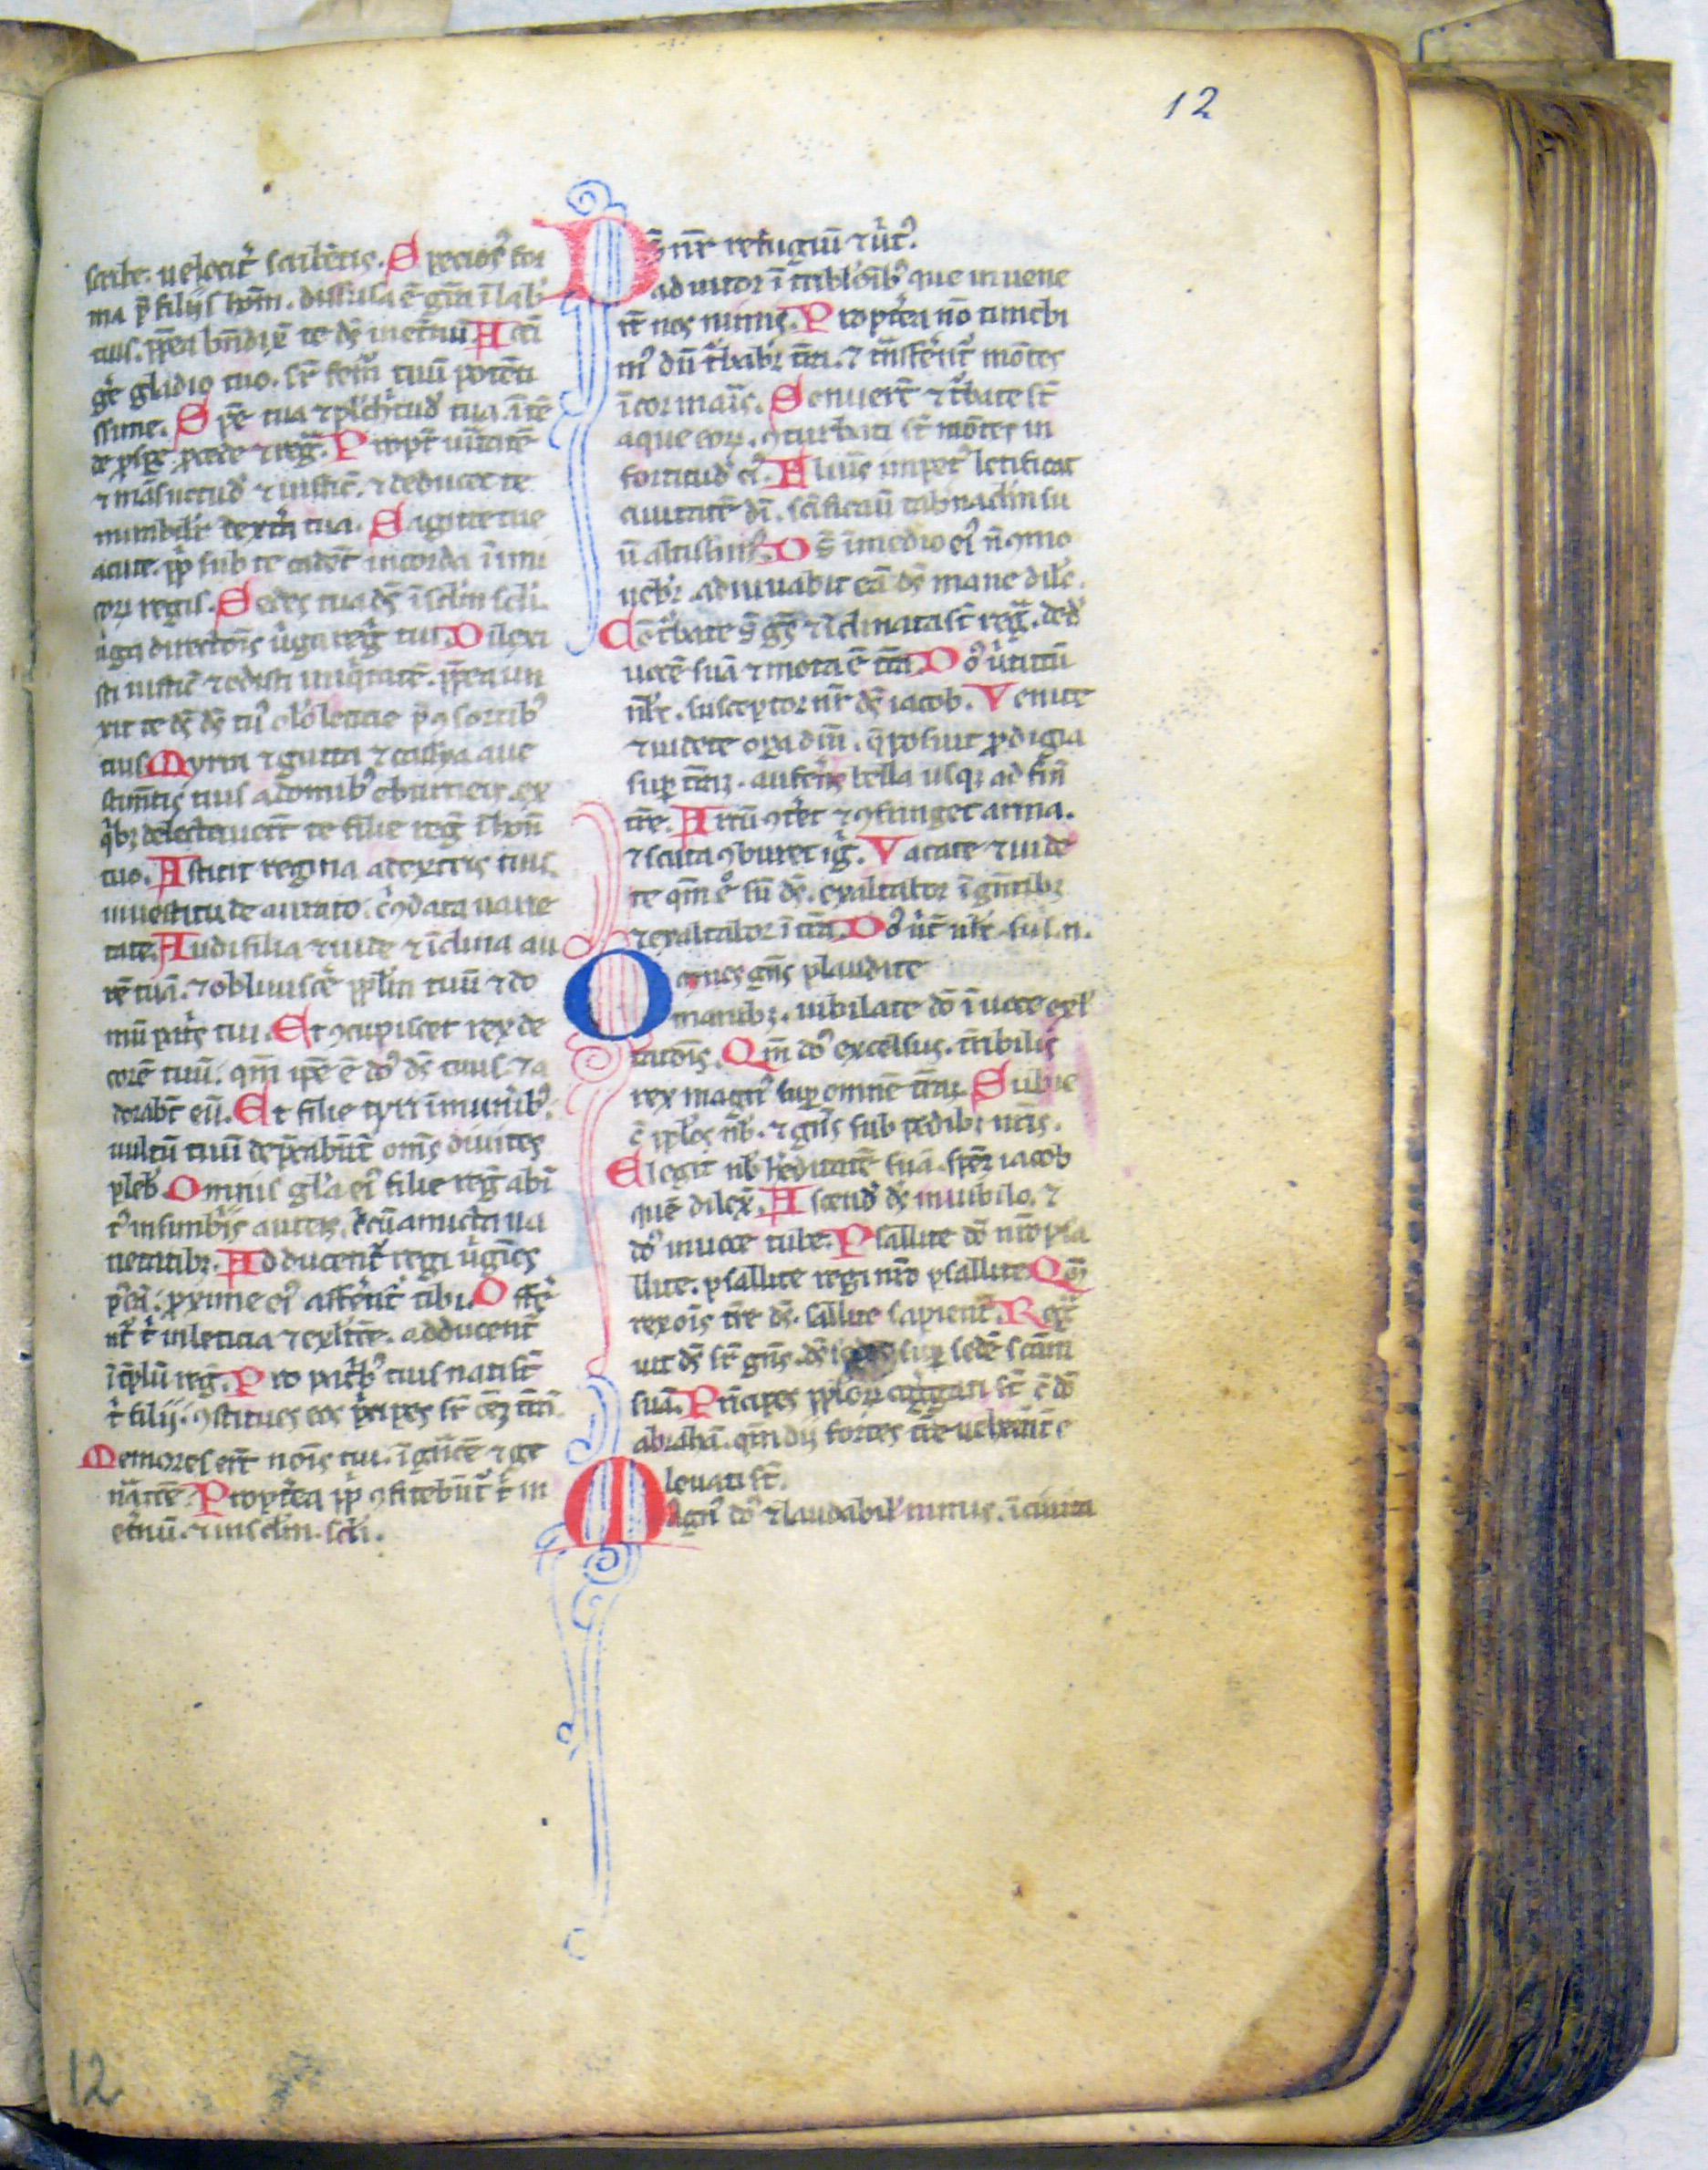 12
scribe. uelocit̾ scribẽtis. Specios᾽ for
ma p̃ filijs hom̃. diffusa ẽ gr̃a ĩ lab᾽
tuis. pp̃ea bn̄dix̃ te dš in et̾nũ. Acci
ge᾽ gladio tuo. sr̃ fem᾽ tuũ potẽti
ssime. Spẽ tua ⁊ pulch᾽tud᾽ tua. ĩtẽ
de pspe pcede ⁊ reg̃. Propt̾ uitatẽ
⁊ mãsuetud᾽ ⁊ iustic̾. ⁊ deducet te
mirabilit̾ dext᾽a tua. Sagitte tue
acute. pp̃li sub te cadẽt in corda inimi
coꝝ regis. Sedes tua dš ĩ sclm̃ scli.
ũga directõis ũga reg̃ tui. Dilexi
sti iustic̾ ⁊ odisti iniq̃tatẽ. pp̃ea un
xit te dš dš tu᾽ oleo leticie p̃ ꝯsortib᾽
tuis. Myrra ⁊ gutta ⁊ cassya aue
stim̃tis tuis a domib᾽ eburneis. ex
q᾽bꝫ delectauer̃t te filie reg̃ ĩ hon̄
tuo. Astitit regina a dextris tuis
in uestitu de aurato. c᾽cũdata uarie
tate. Audi filia ⁊ uide ⁊ ĩclina au
rẽ tuã. ⁊ obliuisc̾e pplm̃ tuũ ⁊ do
mũ pr̃is tui. Et ꝯcupiscet rex de
corẽ tuũ. qm̃ ip̃e ẽ do᾽ dš tuus. ⁊ a
dorab̃t eũ. Et filie tyri ĩ mun̾ib᾽.
uultũ tuũ dep̃cabũt᾽ om̃s diuites
pleb᾽. Omnis gl᾽a ei᾽ filie reg̃ ab ĩ
t᾽ in fimb᾽ijs aureis. c᾽cũamicta ua
rietatibꝫ. Adducent᾽ regi ũgines
p᾽ eã. pxime ei᾽ affer̃t᾽ tibi. Offe᾽
nt᾽ t᾽ in leticia ⁊ exl᾽tc̃e. adducent᾽
ĩ tẽplũ reg̃. Pro pat᾽b᾽ tuis nati st̃
t᾽ filij. ꝯstitues eos p᾽ncipes sr̃ om̃ẽ t̃ra
Memores er̃t nõis tui. ĩ gn̾atc̃e ⁊ ge
n̾atc̃e. Propt̾ea pp̃li ꝯfitebũt᾽ t᾽ in
et̾nũ. ⁊ in sclm̃. scli.
Dš nr̃ refugiũ ⁊ ũt᾽.
adiutor ĩ tribl᾽oib᾽ que inuene
rt̃ nos nimis. Propt̾ea nõ timebi
m᾽ dũ t᾽babr̃ t̃ra. ⁊ tr̃nsfer̃t᾽ mõtes
ĩ cor maris. Sonuer̃t ⁊ t᾽bate st̃
aque eoꝝ. ꝯturbati st̃ mõtes in
fortitud᾽ ei᾽. Fluĩs impet᾽ letificat
ciuitatẽ di᾽. sc̃ificauĩ tabnaclm̃ su
ũ altissim᾽. Dš ĩ medio ei᾽ n̄ ꝯmo
uebr̃. adiuuabit eã dš mane dil᾽c.
Cõt᾽bate s̃ gẽs ⁊ ĩclinata st̃ reg̃. ded᾽
uocẽ suã ⁊ mota ẽ t̃ra. Do᾽ ũtutũ
nb̾c. susceptor nr̃ dš iacob. Venite
⁊ uidete opa dm̃. q̃ posuit pdigia
sup t̃rã. aufer̃s bella usqꝫ ad fin̄
t̃re. Arcũ ꝯt̾et ⁊ ꝯfringet arma.
⁊ scuta ꝯburet ig̾. Vacate ⁊ uide
te qm̃ e᾽ sũ dš. exaltabor ĩ gn̄tibꝫ
⁊ exaltabor ĩ t̃ra. Do᾽ ũt̃ nb̾c. sus. n.
Omnes gn̄s plaudite
manibꝫ. iubilate dõ ĩ uoce exl᾽
tacõis. Qm̃ do᾽ excelsus. t̃ribilis
rex magn᾽ sup omnẽ t̃rã. Subie
c̃ pplos nb᾽. ⁊ gn̄s sub pedibꝫ nr̃is.
Elegit nb᾽ h̾editatẽ suã. spẽ iacob
quẽ dilex̃. Ascend᾽ dš in iubilo. ⁊
do᾽ in uoce tube. Psallite dõ nr̃o psa
llite. psallite regi nr̃o psallite. Qm̃
rex ois t̃re dš. sallite sapient᾽. Reg̃
uit dš sr̃ gn̄s. dš sup sedẽ sc̃am
suã. Principes pploꝝ ꝯg᾽gati st̃ c̃ dõ
abrahã. qm̃ dij fortes t̃re uehem̃t᾽ e
leuati st̃.
Magn᾽ do᾽ ⁊ laudabil᾽ nimis. ĩ ciuita
12